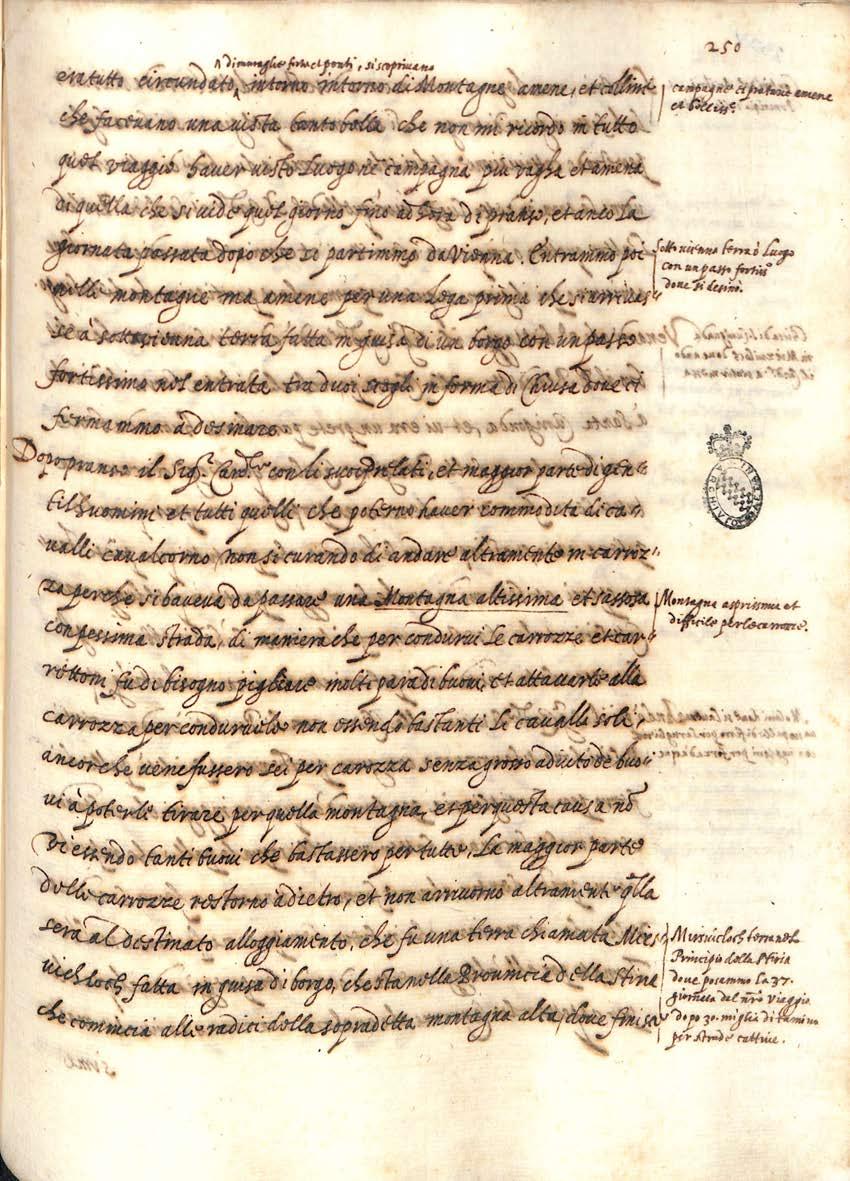 250
di muraglie forte et ponti, si scoprivano
era tutto circundato, intorno intorno di Montagne amene, et colline
che facevano una vista tanto bella che non mi ricordo in tutto
quel viaggio haver visto luogo ne campagna più vaga et amena
di quella che si vide quel giorno fino ad hora di pranso, et anco la
giornata passata dopo che si partimmo da Vienna. Entrammo poi
nelli montagne ma amene per una lega prima che si arrivas=
se à sottovienna terra fatta in guisa di un borgo con un passo
fortissimo nel entrata tra duoi scogli in forma di Chiusa dove ci
fermammo a desinare
Dopo pranso il Sig.r Card.le con li suoi prelati, et maggior parte di gen=
til'huomini et tutti quelli che poterno haver commodita di ca=
valli cavalcorno non si curando di andare altramente in carroz=
za perche si haveva da passare una Montagna altissima et sassosa
con pessima strada, di maniera che per condurvi le carrozze et car=
rettoni fu di bisogno pigliare molti para di buovi, et attaccarli alla
carrozza per condurvele non essendo bastanti li cavalli soli,
ancor che ve ne fussero sei per carozza senza grosso adiuto de buo=
vi à poterle tirare per quella montagna, et per questa causa nō
vi essendo tanti buovi che bastassero per tutte, la maggior parte
delle carrozze restorno adietro, et non arrivorno altramenti q̄lla
sera al destinato alloggiamento, che fu una terra chiamata Miers=
vichloch fatta in guisa di borgo, che sta nella Provincia della Stiria
che comincia alle radici della sopradetta montagna alta, dove finisce
campagne et praterie amene
et belliss.e
Sottovienna terra ò luogo
con un passo fortiss.o
dove si desinò.
Montagna asprissima et
difficile per le carrozze.
terra nel
Principio della Stiria
dove posammo la 37.
giornata del nr̄o viaggio
dopo 30. miglia di camino
per strade cattive.